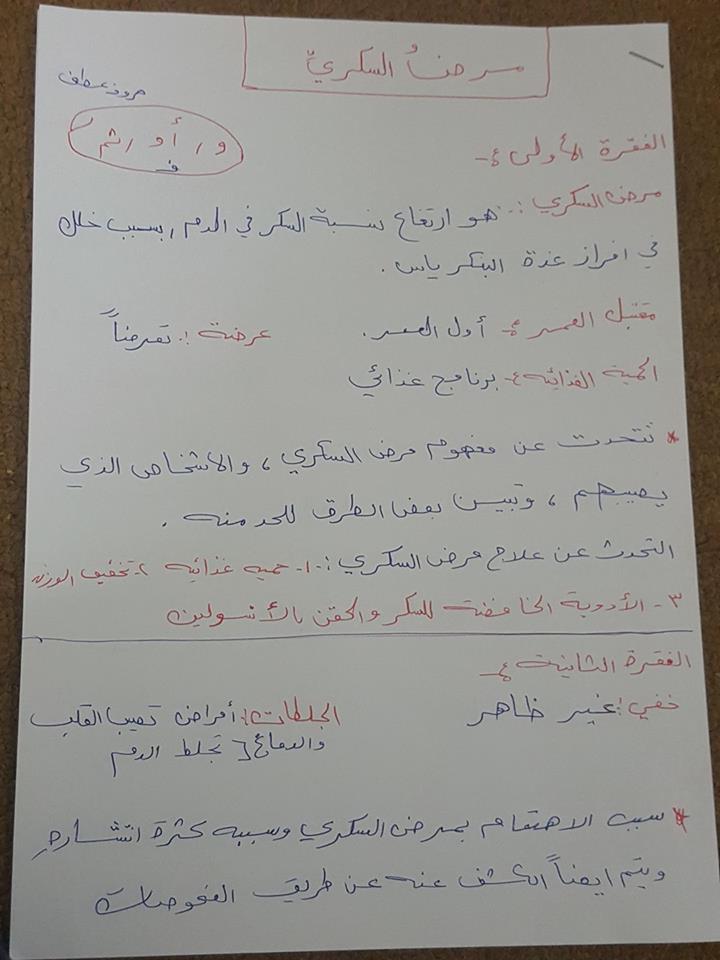 مرضُ السكريّ
حروف عطف
و ، أو ، ثم
ف
الفقرة الأولى :-
مرض السكري :- هو ارتفاع نسبة السكر في الدم ، بسبب خلل
في افراز غدة البنكرياس .
مقتبل العمر :- أول العمر . عرضة : تعرضاً
الحمية الغذائيه :- برنامج غذائي
* نتحدت عن مفهوم مرض السكري ، والاشخاص الذي
يصيبهم ، وتبين بعض الطرق للحد منه .
التحدث عن علاج مرض السكري :- ١- حميه غذائيه ٢- تخفيف الوزن
٣- الأدوية الخافضة للسكر والحقن بالأنسولين
الفقرة الثانية :-
خفي : غير ظاهر الجلطات : أمراض تصيب القلب
والدماغ تجلط الدم
* سبب الاهتمام بمرض السكري وسببه كثرة انتشارهِ
ويتم ايضاً الكشف عنه عن طريق الفحوصات